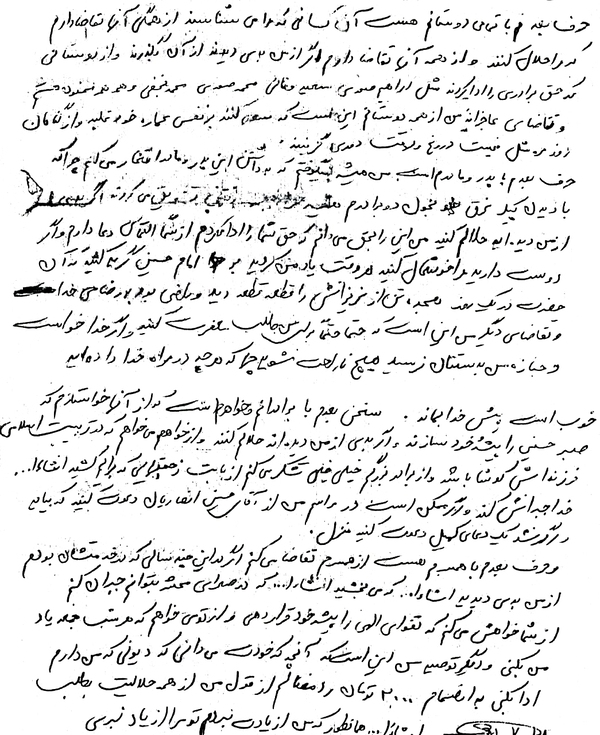 حرف بعدیم با تمامی دوستانم هست آن کسانی که مرا می شناسند از همگی آنها تقاضا دارم
که مرا حلال کنند و از همه آنها تقاضا دارم اگر از من بدی دیدند از آن بگذرند و از دوستانی
که حق برادری را ادا کردند مثل ابراهیم سعید محمد محمد نجفی و هم
و تقاضای عاجزانه من از همه دوستانم این است که سعی کنند بر نفس اماره خود غلبه و از گناهان
روزمره مثل غیبت دروغ و تهمت دوری گزینند.
حرف بعدیم با پدر و مادرم است من همیشه به داشتن این پدر و مادر افتخار می کنم چرا که
با دیدن قبول دو برادرم تشویق می کردند اگر بدی
از من دیده اید حلالم کنید من این را بحق می دانم که حق شما را ادا نکردم از شما التماس دعا دارم و اگر
دوست دارید مرا خوشحال کنید هر وقت یاد من کردید بر امام حسین گریه کنید که آن
حضرت در یک روز تن از عزیزانش را قطعه قطعه دید و راضی بود به رضای خدا
و تقاضای دیگر من این است که حتماً حتماً برای من طلب مغفرت کنید و اگر خدا خواست
و جنازه من به دستتان نرسید هیچ ناراحت نشوید چرا که هر چه در راه خدا داده اید
خوب است پیش خدا بماند . سخنی بعدیم با برادرانم و خواهرم است که از آنها خواستارم که
صبر حسینی را پیشه خود سازند و اگر بدی از من دیده اند حلالم کنند و از خواهرم می خواهم که در تربیت اسلامی
فرزندانش کوشا باشد و از برادر بزرگم خیلی خیلی تشکر می کنم از بابت زحمتهایی که برایم کشید انشاءا...
خدا جبرانش کند و اگر ممکن است در مراسم من از آقای حسین انصاریان دعوت کنید که بیاید
و اگر نشد یک دعای کمیل دعوت کنید منزل.
و حرف بعدیم با همسرم هست از همسرم تقاضا می کنم اگر در این چند سالی که در خدمتشان بودم
از من بدی دیدید انشاءا... که می بخشید انشاءا... که در صحرای محشر بتوانم جبران کنم
از شما خواهش می کنم که تقوای الهی را پیشه خود قرار دهی و از تو می خواهم که هر شب جمعه یاد
من بکنی و دیگر توصیه من این است که آنچه که خودت می دانی که دیونی که من دارم
ادا بکنی به انضمام تومان رد مظالم از قول من از همه حلالیت بطلب
انشاءا... همانطور که من از یادت نبردم تو مرا از یاد نبری